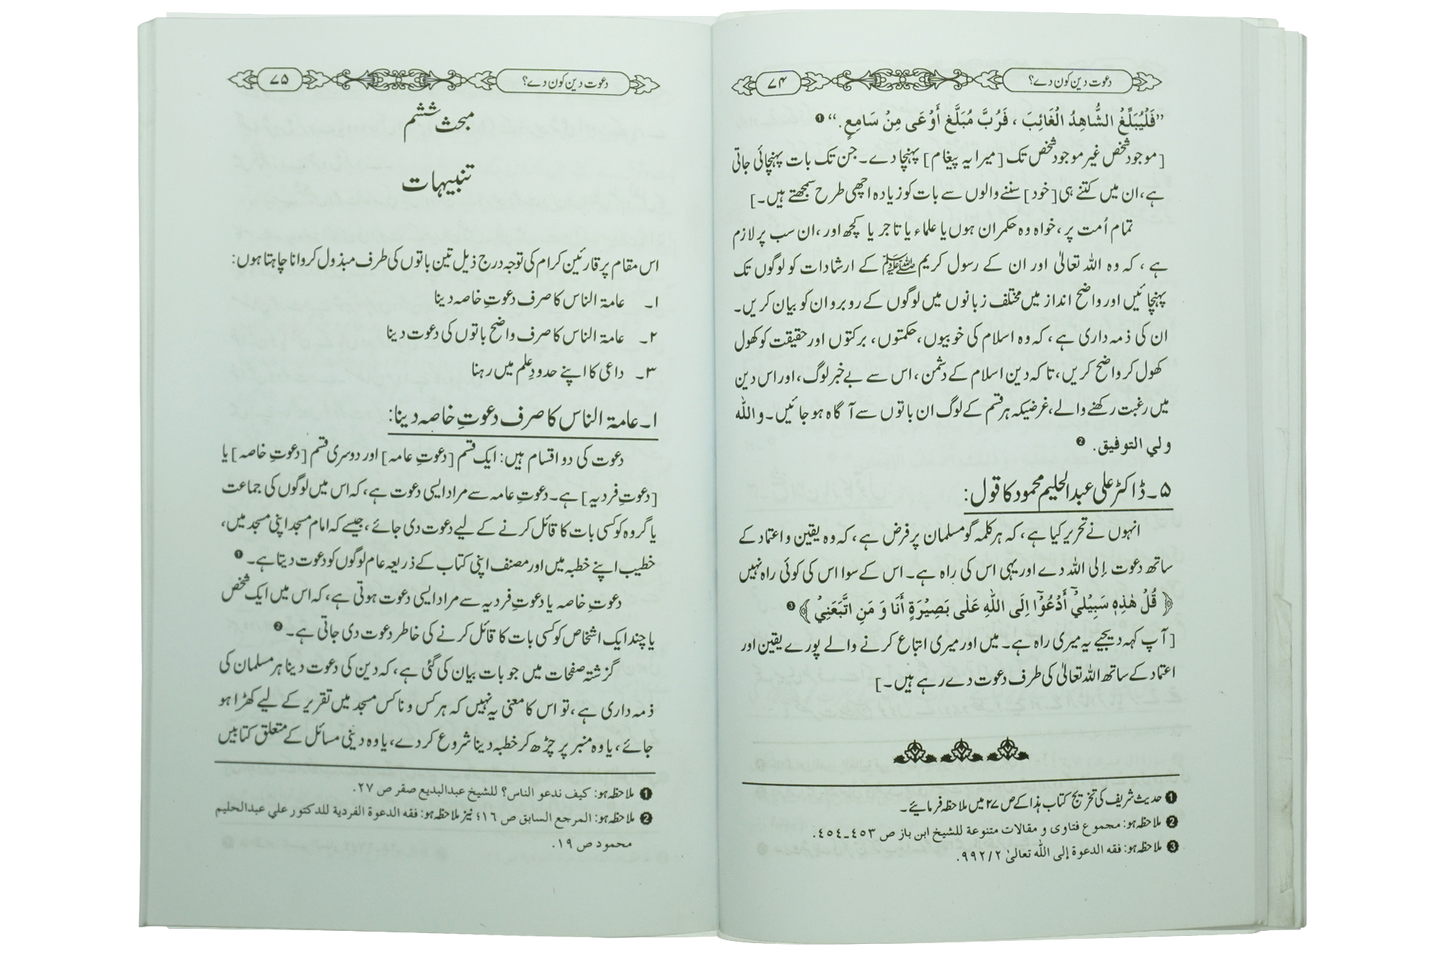 دعوت دین کون دے؟ ۷۴
”فَلْيُبَلِّغُ الشُّاهِدُ الْغَائِبَ ، فَرُبَّ مُبَلَّغٍ أَوْعَى مِنْ سَامِعٍ .“ ❶
[موجود شخص غیر موجود شخص تک [میرا یہ پیغام] پہنچا دے۔ جن تک بات پہنچائی جاتی
ہے، ان میں کتنے ہی [خود] سننے والوں سے بات کو زیادہ اچھی طرح سمجھتے ہیں۔]
تمام اُمت پر، خواہ وہ حکمران ہوں یا علماء یا تاجر یا کچھ اور، ان سب پر لازم
ہے، کہ وہ اللہ تعالیٰ اور ان کے رسول کریم ﷺ کے ارشادات کو لوگوں تک
پہنچائیں اور واضح انداز میں مختلف زبانوں میں لوگوں کے روبرو ان کو بیان کریں۔
ان کی ذمہ داری ہے، کہ وہ اسلام کی خوبیوں، حکمتوں، برکتوں اور حقیقت کو کھول
کھول کر واضح کریں، تاکہ دین اسلام کے دشمن، اس سے بے خبر لوگ، اور اس دین
میں رغبت رکھنے والے، غرضیکہ ہر قسم کے لوگ ان باتوں سے آگاہ ہو جائیں۔ واللہ
ولي التوفيق. ❷
۵۔ ڈاکٹر علی عبدالحلیم محمود کا قول:
انہوں نے تحریر کیا ہے، کہ ہر کلمہ گو مسلمان پر فرض ہے، کہ وہ یقین و اعتماد کے
ساتھ دعوت إلی اللہ دے اور یہی اس کی راہ ہے۔ اس کے سوا اس کی کوئی راہ نہیں
﴿ قُلْ هٰذِهٖ سَبِيْلِيْٓ أَدْعُوْٓا اِلَى اللّٰهِ عَلٰى بَصِيْرَةٍ أَنَا وَ مَنِ اتَّبَعَنِيْ ﴾ ❸
[آپ کہہ دیجیے یہ میری راہ ہے۔ میں اور میری اتباع کرنے والے پورے یقین اور
اعتماد کے ساتھ اللہ تعالیٰ کی طرف دعوت دے رہے ہیں۔]
❶ حدیث شریف کی تخریج کتاب ہذا کے ص ۲۷ میں ملاحظہ فرمائیے۔
❷ ملاحظہ ہو: مجموع فتاوى و مقالات متنوعة للشيخ ابن باز ص ٤٥٣-٤٥٤.
❸ ملاحظہ ہو: فقه الدعوة إلى الله تعالىٰ ٩٩٢/٢.
دعوت دین کون دے؟ ۷۵
مبحث ششم
تنبیہات
اس مقام پر قارئین کرام کی توجہ درج ذیل تین باتوں کی طرف مبذول کروانا چاہتا ہوں:
۱۔ عامۃ الناس کا صرف دعوتِ خاصہ دینا
۲۔ عامۃ الناس کا صرف واضح باتوں کی دعوت دینا
۳۔ داعی کا اپنے حدودِ علم میں رہنا
۱۔ عامۃ الناس کا صرف دعوتِ خاصہ دینا:
دعوت کی دو اقسام ہیں: ایک قسم [دعوتِ عامہ] اور دوسری قسم [دعوتِ خاصہ] یا
[دعوتِ فردیہ] ہے۔ دعوتِ عامہ سے مراد ایسی دعوت ہے، کہ اس میں لوگوں کی جماعت
یا گروہ کو کسی بات کا قائل کرنے کے لیے دعوت دی جائے، جیسے کہ امام مسجد اپنی مسجد میں،
خطیب اپنے خطبہ میں اور مصنف اپنی کتاب کے ذریعہ عام لوگوں کو دعوت دیتا ہے۔ ❶
دعوتِ خاصہ یا دعوتِ فردیہ سے مراد ایسی دعوت ہوتی ہے، کہ اس میں ایک شخص
یا چند ایک اشخاص کو کسی بات کا قائل کرنے کی خاطر دعوت دی جاتی ہے۔ ❷
گزشتہ صفحات میں جو بات بیان کی گئی ہے، کہ دین کی دعوت دینا ہر مسلمان کی
ذمہ داری ہے، تو اس کا معنی یہ نہیں کہ ہر کس و ناکس مسجد میں تقریر کے لیے کھڑا ہو
جائے، یا وہ منبر پر چڑھ کر خطبہ دینا شروع کر دے، یا وہ دینی مسائل کے متعلق کتابیں
❶ ملاحظہ ہو: كيف ندعو الناس؟ للشيخ عبدالبديع صقر ص ۲۷.
❷ ملاحظہ ہو: المرجع السابق ص ٤١٦؛ نیز ملاحظہ ہو: فقه الدعوة الفردية للدكتور علي عبدالحليم
محمود ص ۱۹.